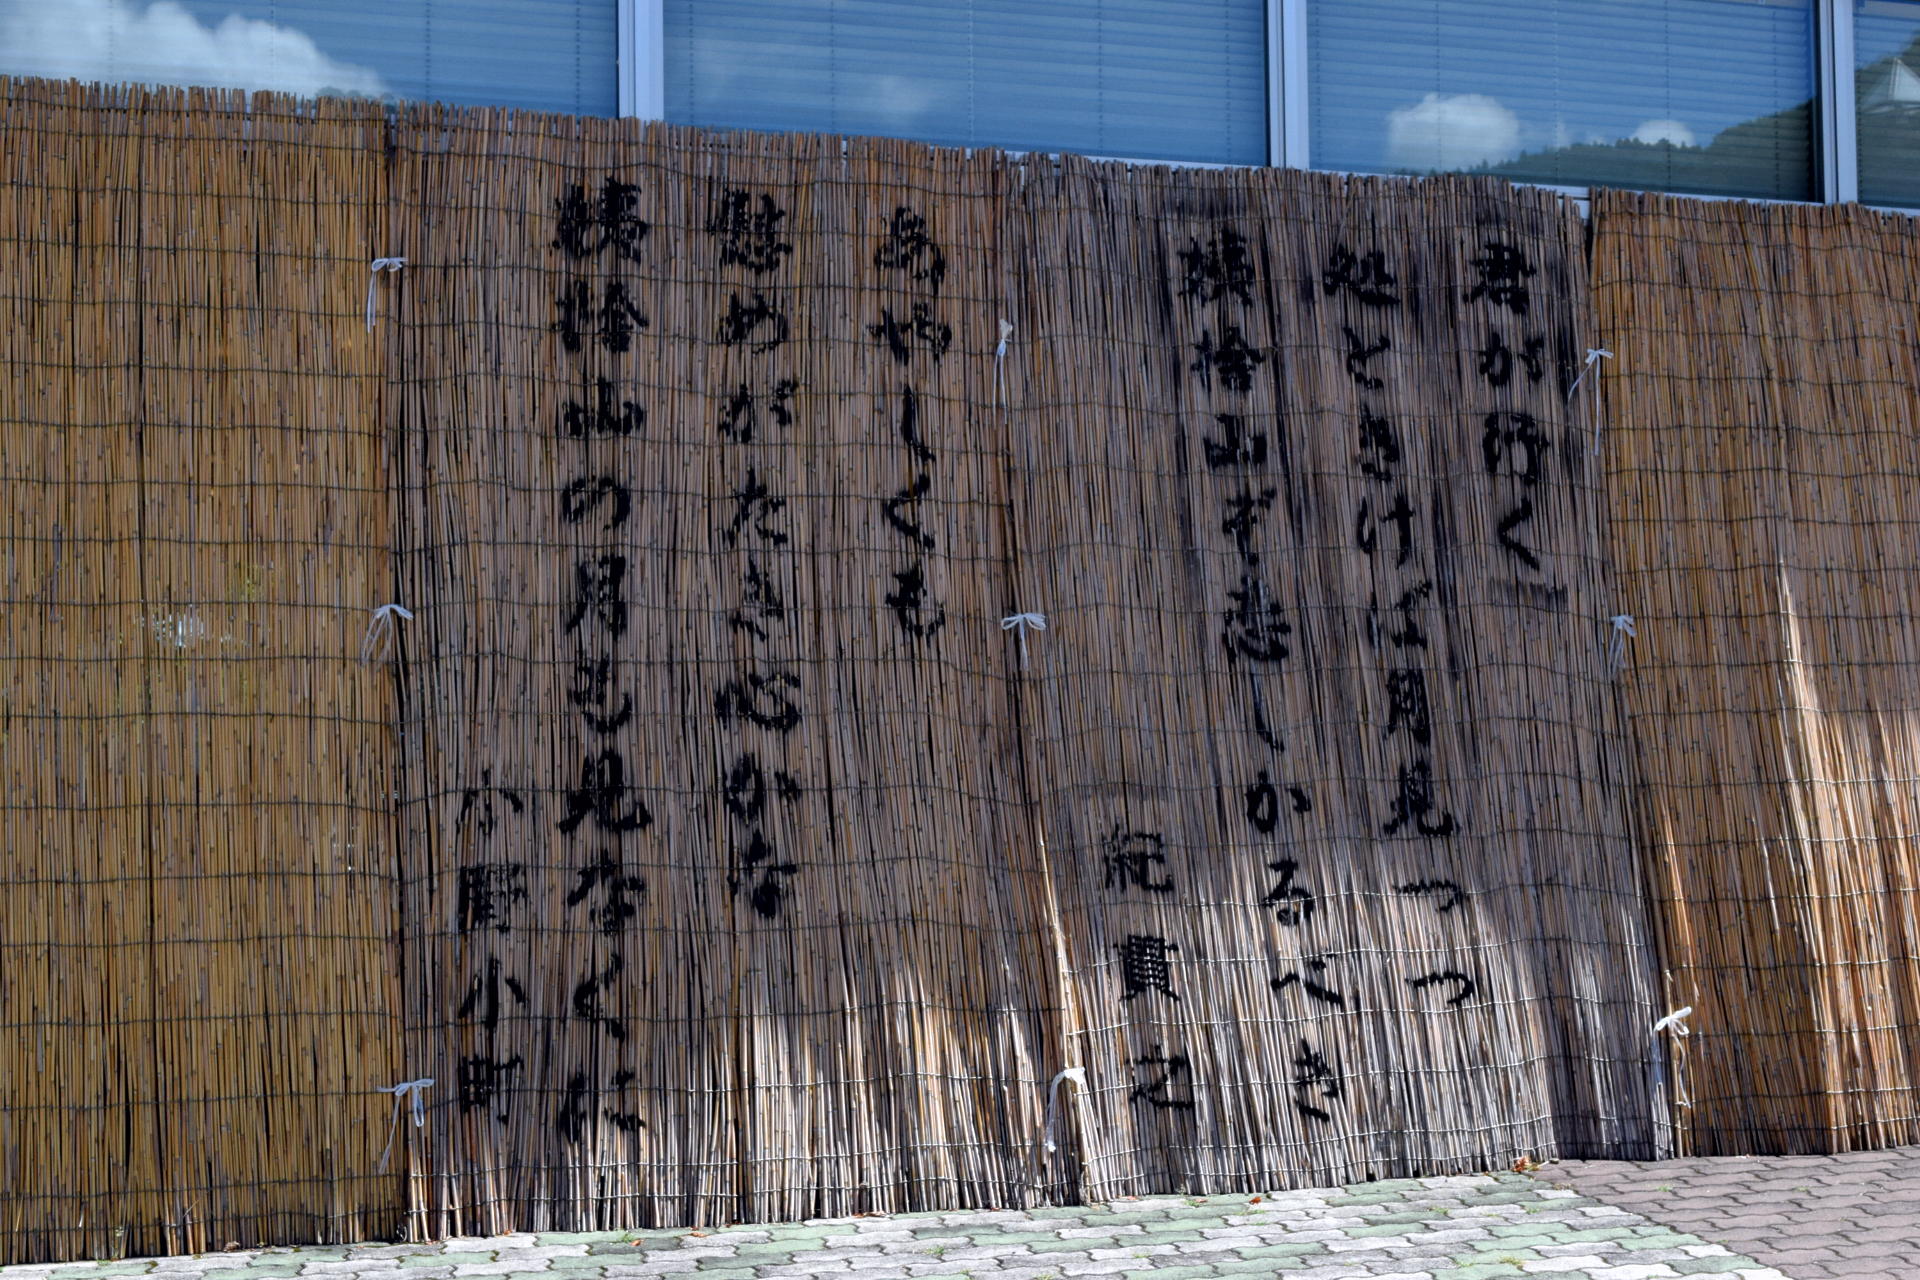 君が行く
処ときけば月見つつ
姨捨山ぞ恋しかるべき
紀貫之
あやしくも
慰めがたき心かな
姨捨山の月も見なくに
小野小町